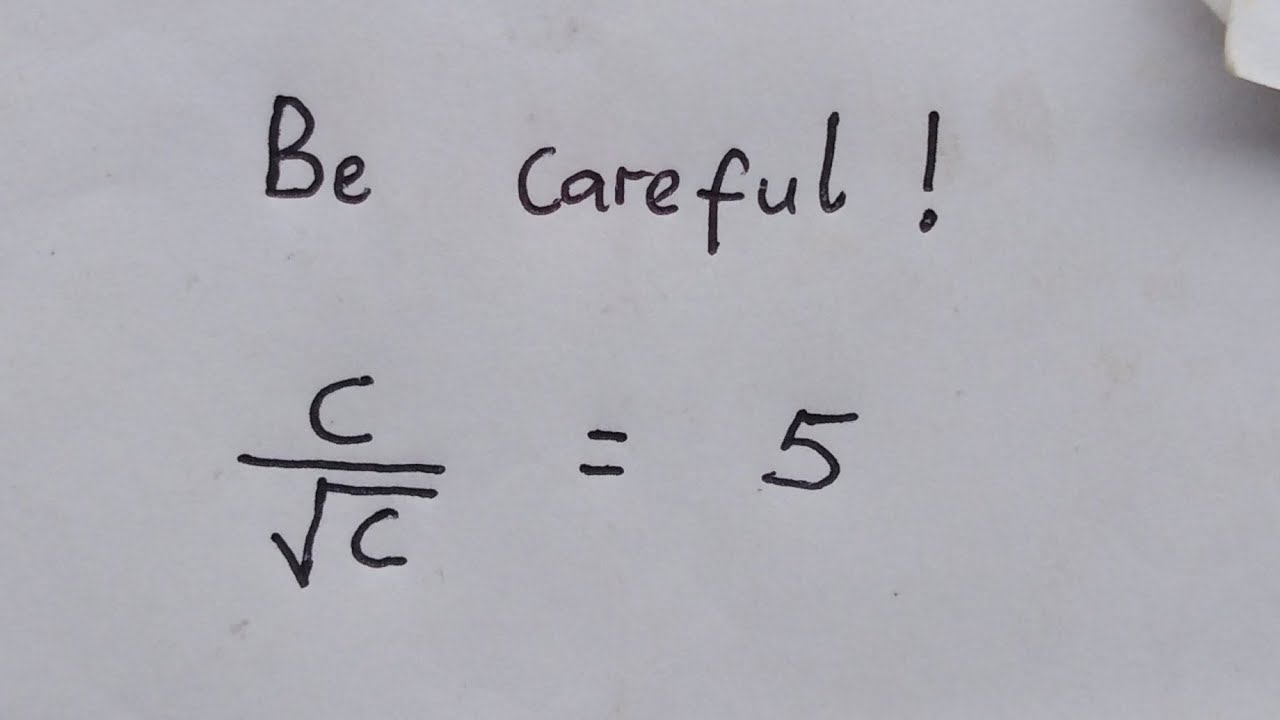 Be careful!
C/√C = 5